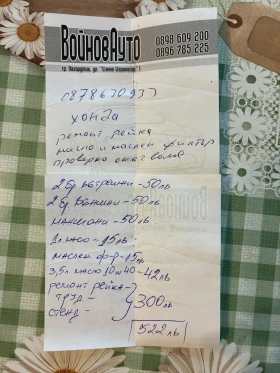 ВойновАуто
0898 609 200
0896 785 225
гр. Пазарджик, ул. "
0878670937
хонда
ремонт рейка
масло и маслен филтър
проверка окачване
2бр вътрешни-50лв
2бр външни-50лв
маншони-50лв
1л масло-15лв
маслен ф-р-15лв
3,5л масло 10w40-42лв
ремонт рейка-
труд-
стенд-
300лв
522лв